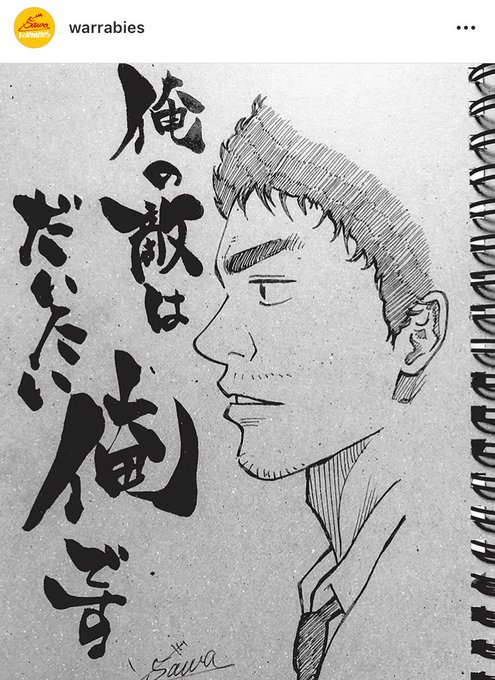 warrabies
俺の敵は
だいたい
俺です
Sawa